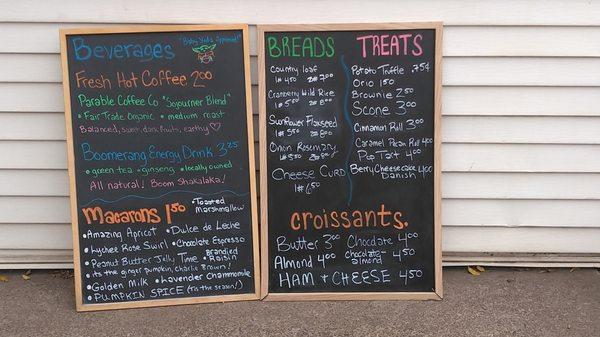 Beverages
"Baby Yoda approved"
Fresh Hot Coffee 2.00
Parable Coffee Co "Sojourner Blend"
• Fair Trade Organic • medium roast
Balanced, sweet, dark fruits, earthy ♡
Boomerang Energy Drink 3.25
• green tea • ginseng • locally owned
All natural! Boom Shakalaka!
Macarons 1.50
• Toasted Marshmallow
• Amazing Apricot
• Dulce de Leche
• Lychee Rose Swirl
• Chocolate Espresso
• Peanut Butter Jelly Time
• Brandied Raisin
• its the ginger pumpkin, charlie brown!
• Golden Milk
• Lavender Chammomile
• Pumpkin Spice (tis the season!)
BREADS
Country loaf
1# 4.50 2# 7.00
Cranberry Wild Rice
1# 5.50 2# 8.00
Sunflower Flaxseed
1# 5.50 2# 8.00
Onion Rosemary
1# 5.50 2# 8.00
Cheese Curd
1# 6.50
TREATS
Potato Truffle .75¢
Orio 1.50
Brownie 2.50
Scone 3.00
Cinnamon Roll 3.00
Caramel Pecan Roll 4.00
Pop Tart 4.00
Berry Cheesecake Danish 4.00
croissants.
Butter 3.00 Chocolate 4.00
Almond 4.00 Chocolate-almond 4.50
HAM + CHEESE 4.50